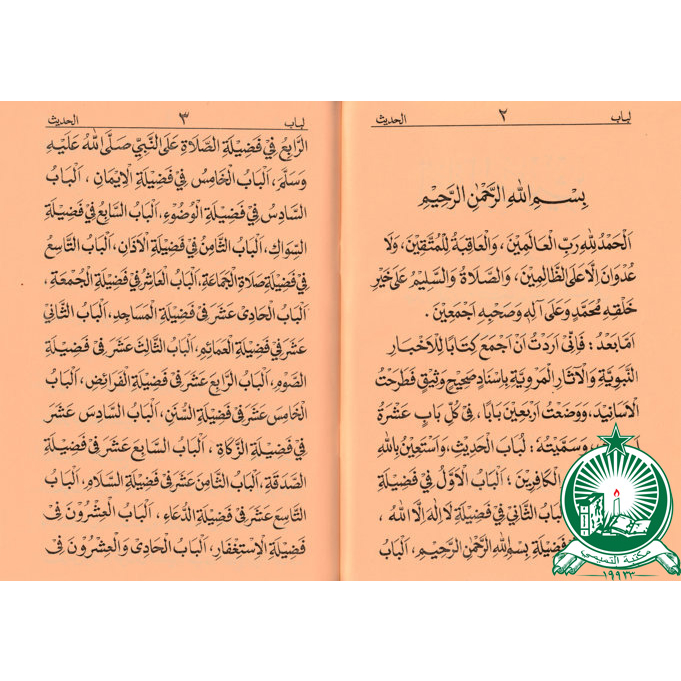 لباب ٢ الحديث
بِسْمِ اللهِ الرَّحْمٰنِ الرَّحِيْمِ
اَلْحَمْدُ لِلّٰهِ رَبِّ الْعَالَمِيْنَ، وَالْعَاقِبَةُ لِلْمُتَّقِيْنَ، وَلَا
عُدْوَانَ اِلَّا عَلَى الظَّالِمِيْنَ، وَالصَّلَاةُ وَالسَّلِيْمُ عَلَى خَيْرِ
خَلْقِهِ مُحَمَّدٍ وَعَلَى آلِهِ وَصَحْبِهِ اَجْمَعِيْنَ.
اَمَّا بَعْدُ: فَاِنِّى اَرَدْتُ اَنْ اَجْمَعَ كِتَابًا لِلْاَخْبَارِ
النَّبَوِيَّةِ وَالْآثَارِ الْمَرْوِيَّةِ بِاِسْنَادٍ صَحِيْحٍ وَثِيْقٍ فَطَرَحْتُ
الْاَسَانِيْدَ، وَوَضَعْتُ اَرْبَعِيْنَ بَابًا، فِي كُلِّ بَابٍ عَشْرَةُ
وَسَمَّيْتُهُ: لُبَابَ الْحَدِيْثِ، وَاَسْتَعِيْنُ بِاللهِ
الْكَافِرِيْنَ؛ اَلْبَابُ الْاَوَّلُ فِي فَضِيْلَةِ
الْبَابُ الثَّانِي فِي فَضِيْلَةِ لَا اِلٰهَ اِلَّا اللهُ،
فَضِيْلَةِ بِسْمِ اللهِ الرَّحْمٰنِ الرَّحِيْمِ، اَلْبَابُ
لباب ٣ الحديث
الرَّابِعُ فِي فَضِيْلَةِ الصَّلَاةِ عَلَى النَّبِيِّ صَلَّى اللهُ عَلَيْهِ
وَسَلَّمَ، اَلْبَابُ الْخَامِسُ فِي فَضِيْلَةِ الْاِيْمَانِ، اَلْبَابُ
السَّادِسُ فِي فَضِيْلَةِ الْوُضُوْءِ، اَلْبَابُ السَّابِعُ فِي فَضِيْلَةِ
السِّوَاكِ، اَلْبَابُ الثَّامِنُ فِي فَضِيْلَةِ الْاَذَانِ، اَلْبَابُ التَّاسِعُ
فِي فَضِيْلَةِ صَلَاةِ الْجَمَاعَةِ، اَلْبَابُ الْعَاشِرُ فِي فَضِيْلَةِ الْجُمُعَةِ،
اَلْبَابُ الْحَادِى عَشَرَ فِي فَضِيْلَةِ الْمَسَاجِدِ، اَلْبَابُ الثَّانِي
عَشَرَ فِي فَضِيْلَةِ الْعَمَائِمِ، اَلْبَابُ الثَّالِثَ عَشَرَ فِي فَضِيْلَةِ
الصَّوْمِ، اَلْبَابُ الرَّابِعَ عَشَرَ فِي فَضِيْلَةِ الْفَرَائِضِ، اَلْبَابُ
الْخَامِسَ عَشَرَ فِي فَضِيْلَةِ السُّنَنِ، اَلْبَابُ السَّادِسَ عَشَرَ
فِي فَضِيْلَةِ الزَّكَاةِ، اَلْبَابُ السَّابِعَ عَشَرَ فِي فَضِيْلَةِ
الصَّدَقَةِ، اَلْبَابُ الثَّامِنَ عَشَرَ فِي فَضِيْلَةِ السَّلَامِ، اَلْبَابُ
التَّاسِعَ عَشَرَ فِي فَضِيْلَةِ الدُّعَاءِ، اَلْبَابُ الْعِشْرُوْنَ فِى
فَضِيْلَةِ الْاِسْتِغْفَارِ، اَلْبَابُ الْحَادِى وَالْعِشْرُوْنَ فِى
مكتبة التميمي
١٩٩٣٣